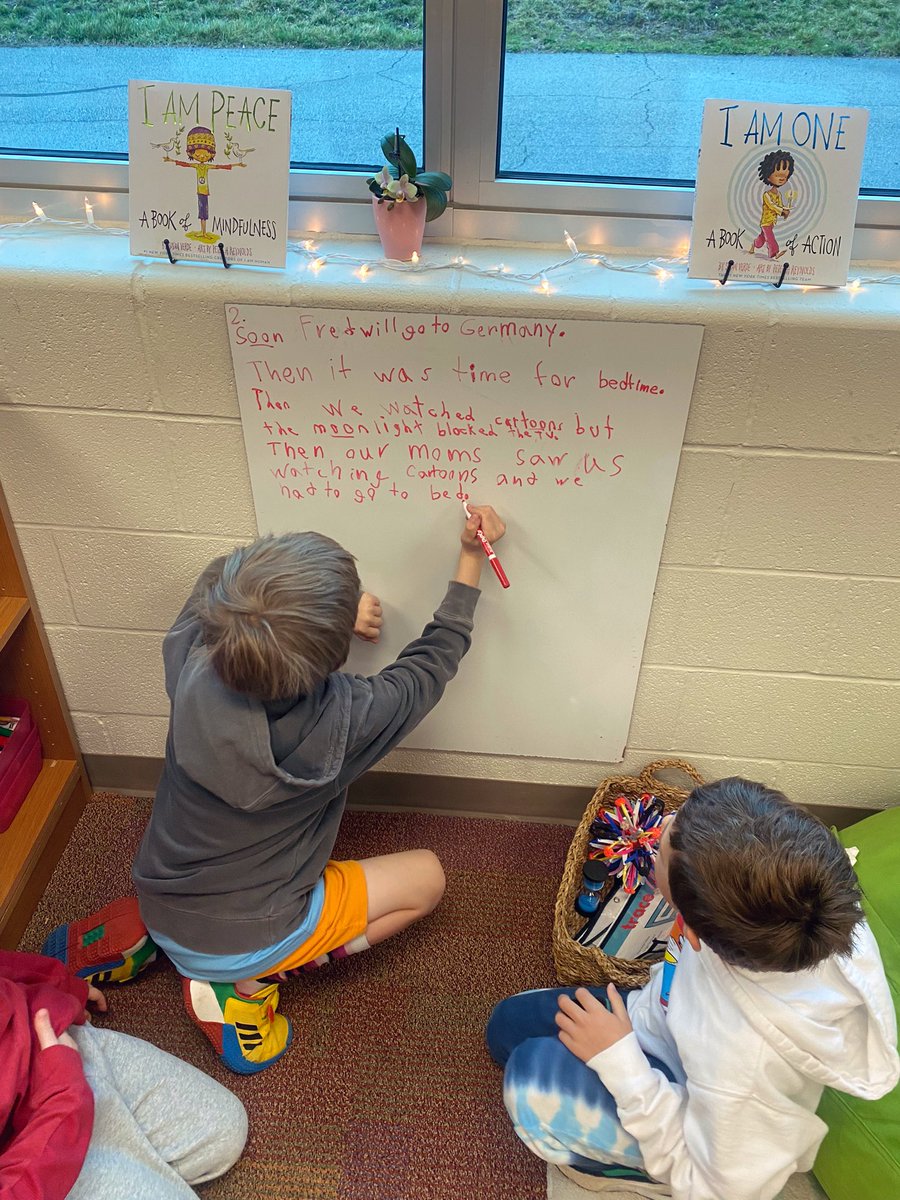 I AM PEACE
A BOOK of MINDFULNESS
I AM ONE
A BOOK of ACTION
2.
Soon Fred will go to Germany.
Then it was time for bedtime.
Then we watched cartoons but
the moonlight blocked the T.V.
Then our moms saw us
watching cartoons and we
had to go to bed.